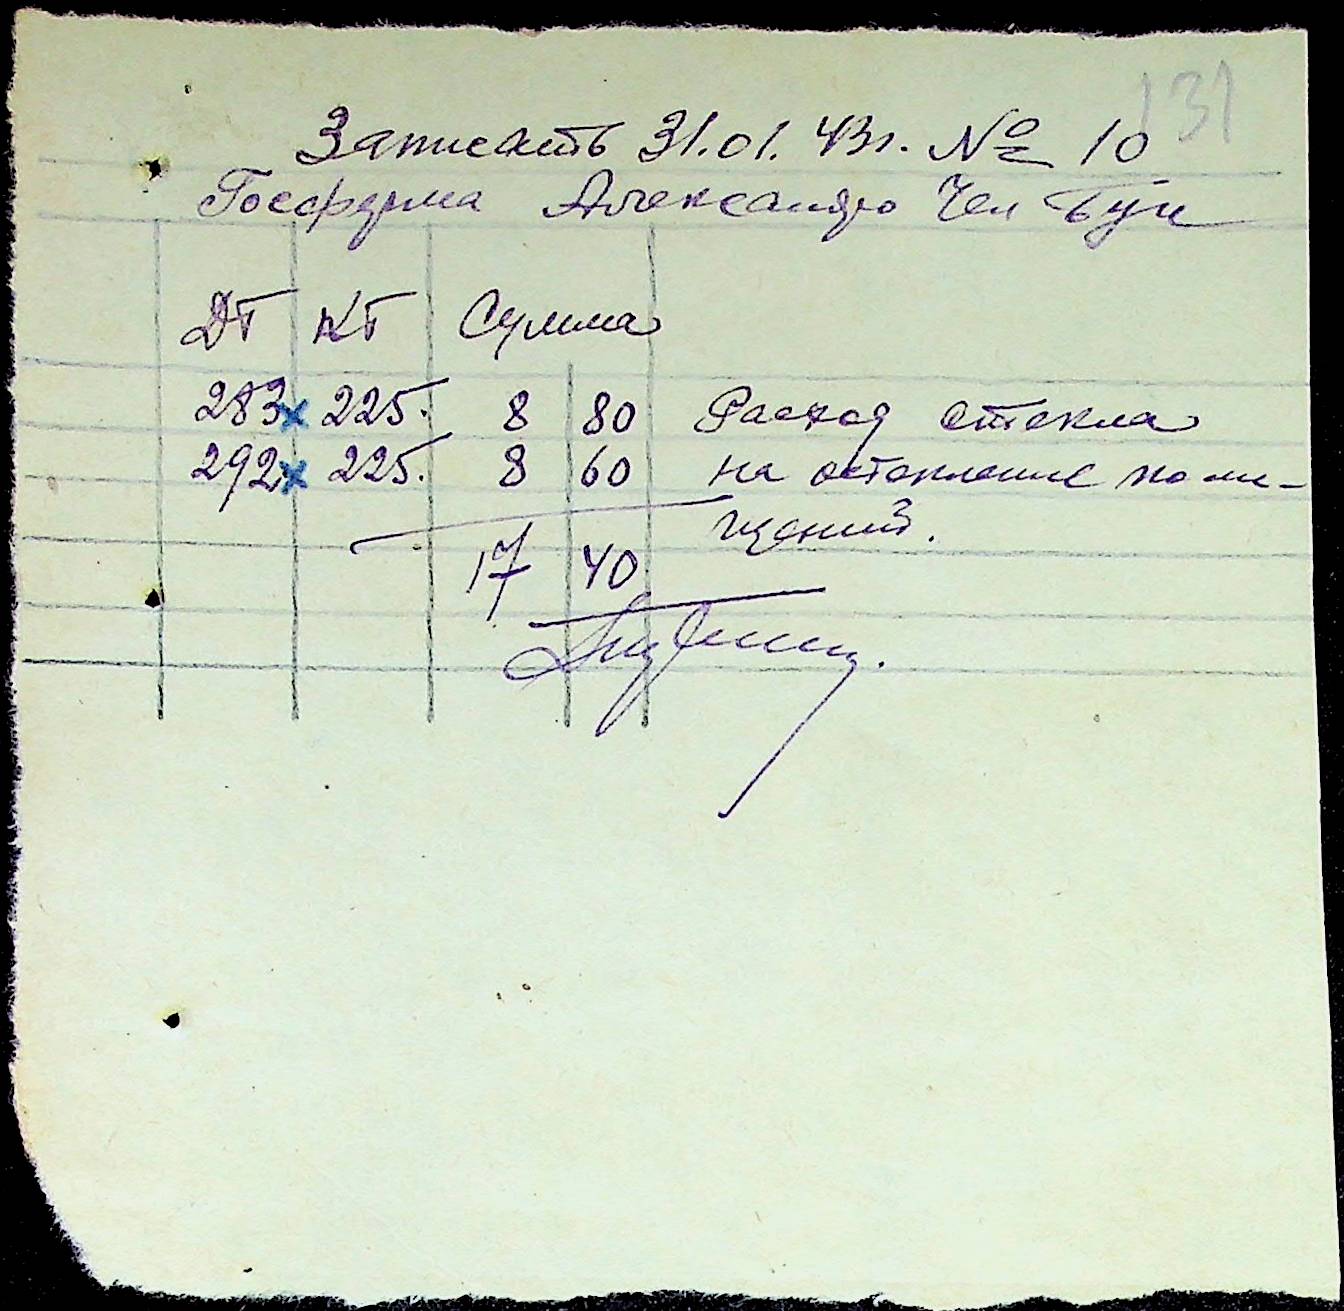 131
Записать 31.01.43г. № 10
Госферма Александро Чел Бук
ДТ КТ Сумма
283 х 225. 8 80 Расход стекла
292 х 225. 8 60 на остекление поме-
щений.
17 40